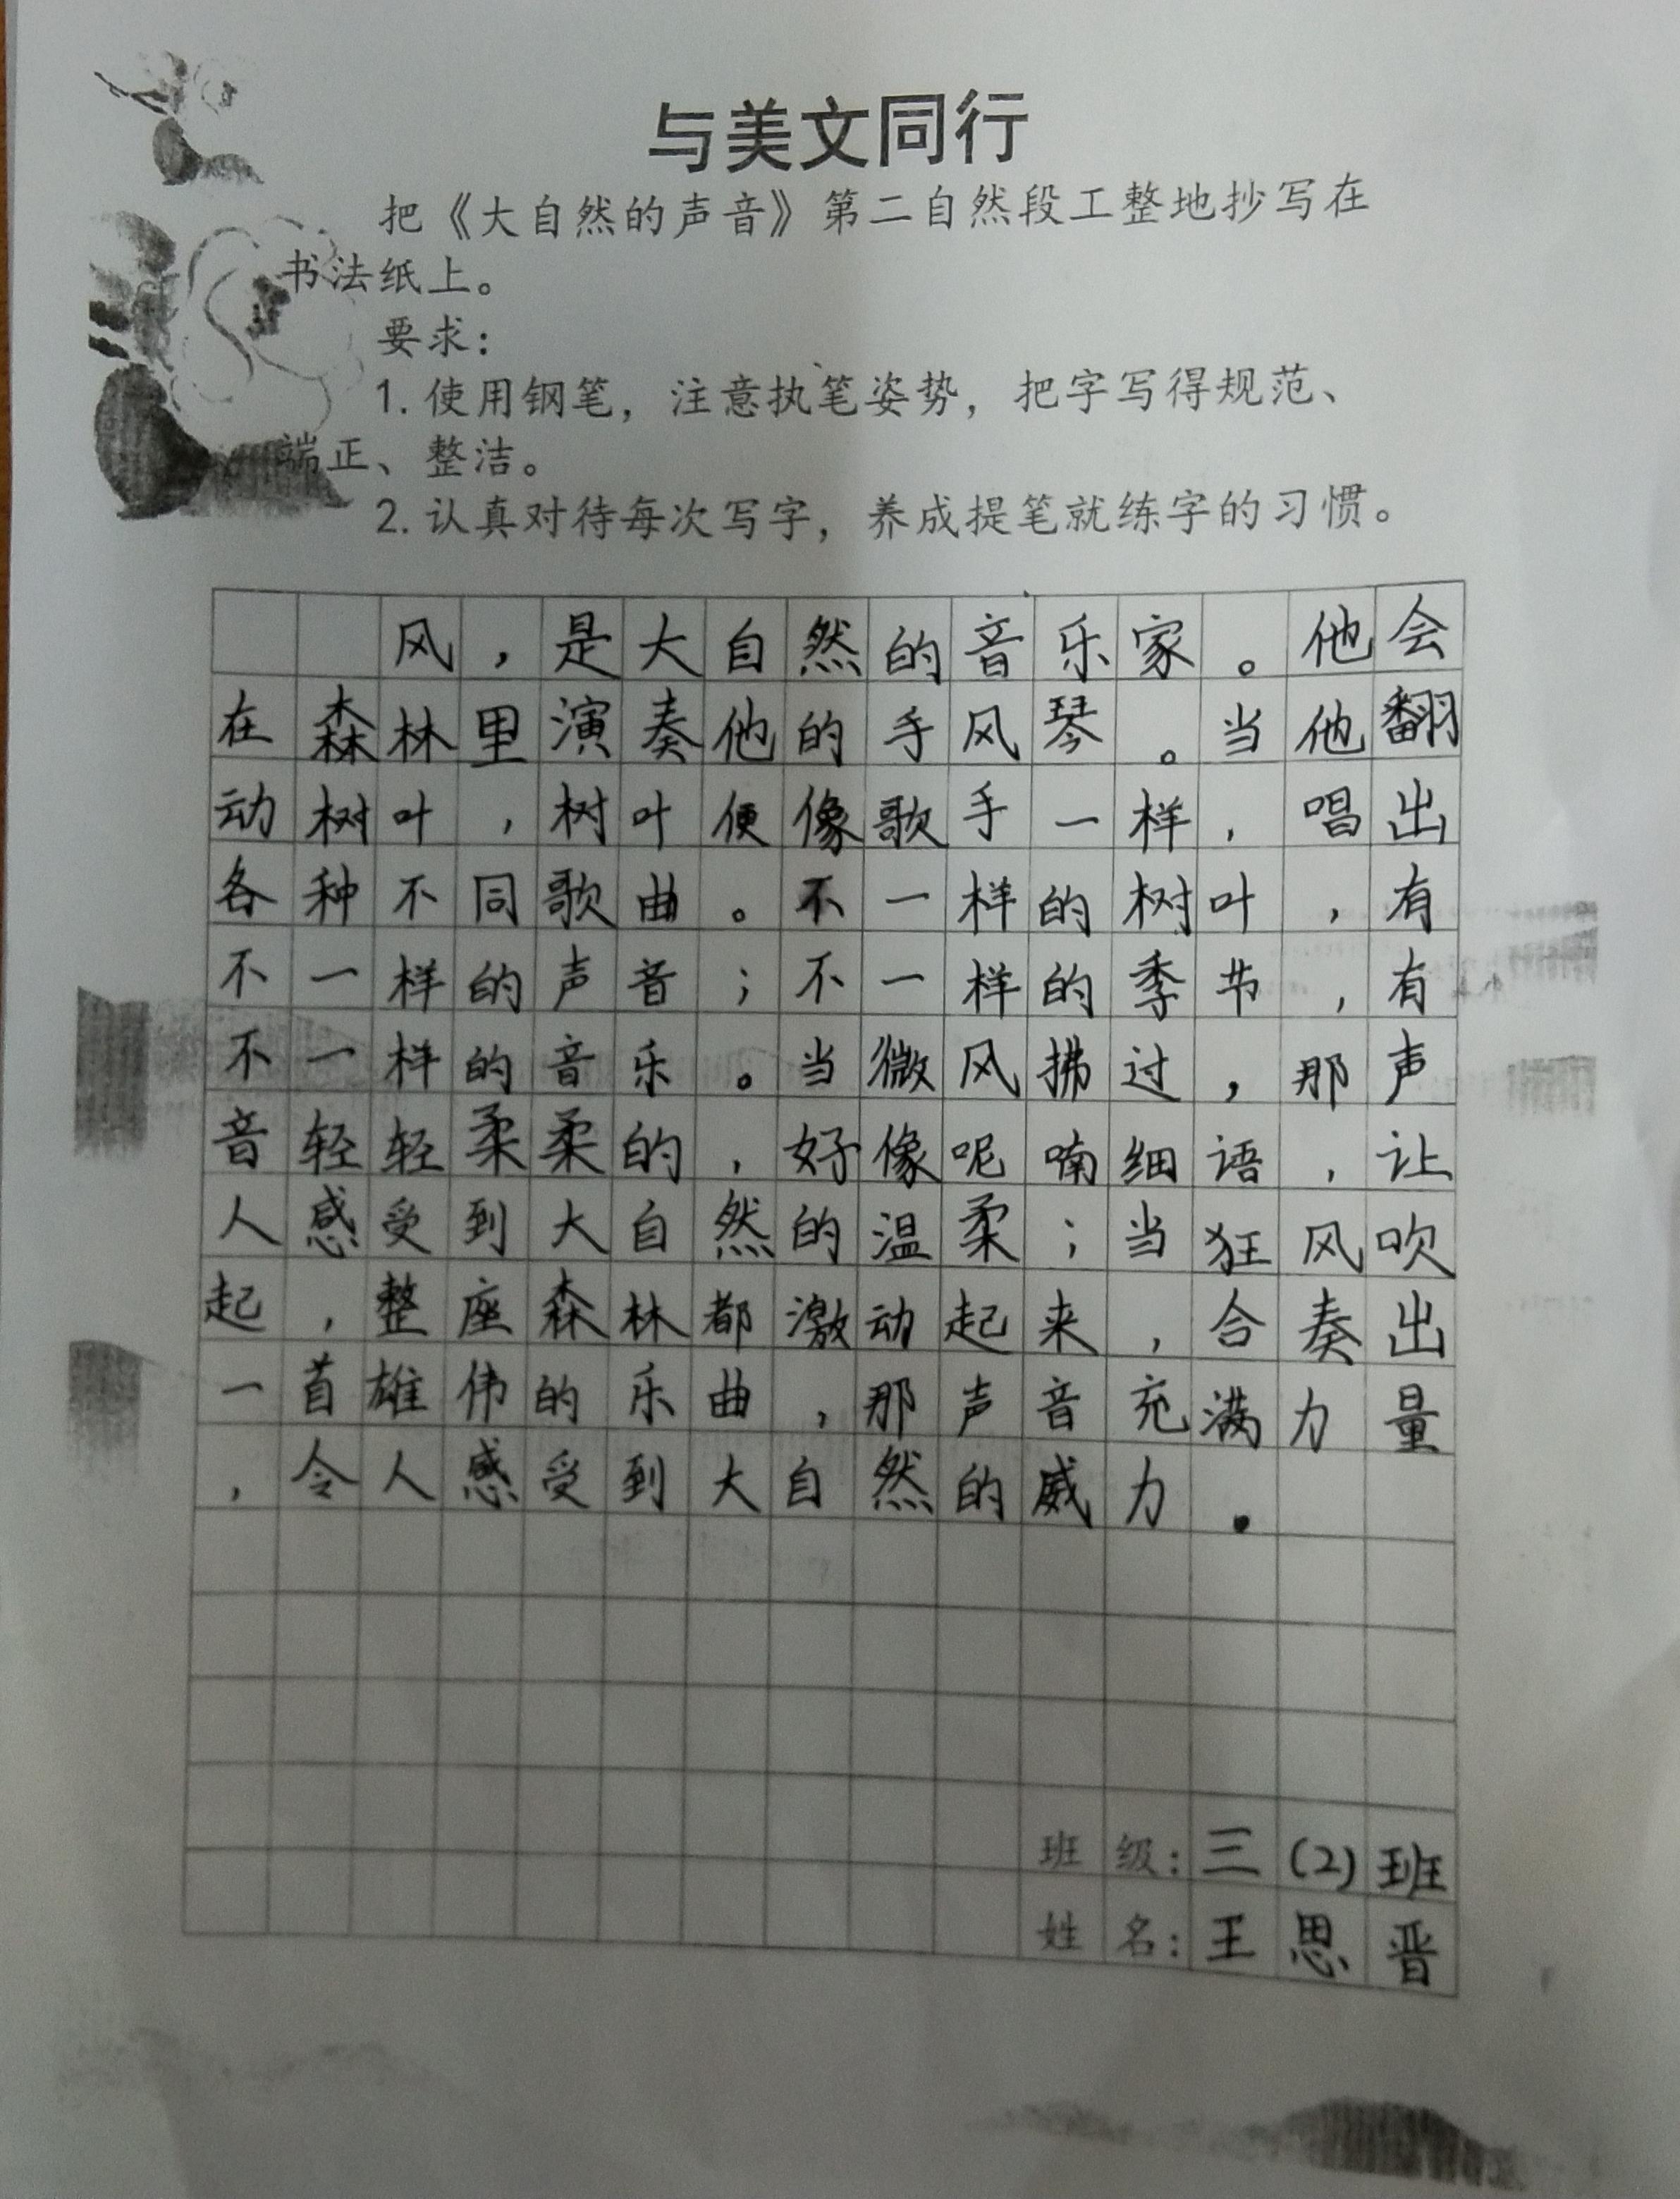 与美文同行
把《大自然的声音》第二自然段工整地抄写在
书法纸上。
要求：
1. 使用钢笔，注意执笔姿势，把字写得规范、
端正、整洁。
2. 认真对待每次写字，养成提笔就练字的习惯。
风，是大自然的音乐家。他会
在森林里演奏他的手风琴。当他翻
动树叶，树叶便像歌手一样，唱出
各种不同歌曲。不一样的树叶，有
不一样的声音；不一样的季节，有
不一样的音乐。当微风拂过，那声
音轻轻柔柔的，好像呢喃细语，让
人感受到大自然的温柔；当狂风吹
起，整座森林都激动起来，合奏出
一首雄伟的乐曲，那声音充满力量
，令人感受到大自然的威力.
班级：三(2)班
姓名：王思晋